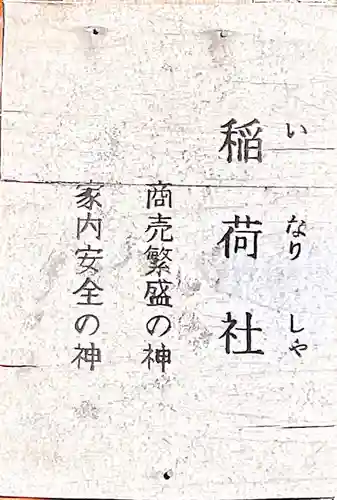 いなりしや
稲荷社
商売繁盛の神
家内安全の神